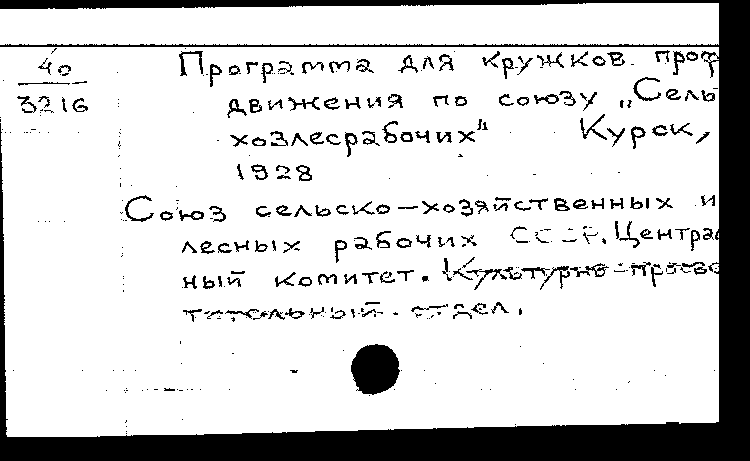 40
3216
Программа для кружков. проф
движения по союзу „Сель
хозлесрабочих" Курск,
1928
Союз сельско-хозяйственных и
лесных рабочих СССР. Центра
ный комитет. Культурно-просве
тительный отдел.